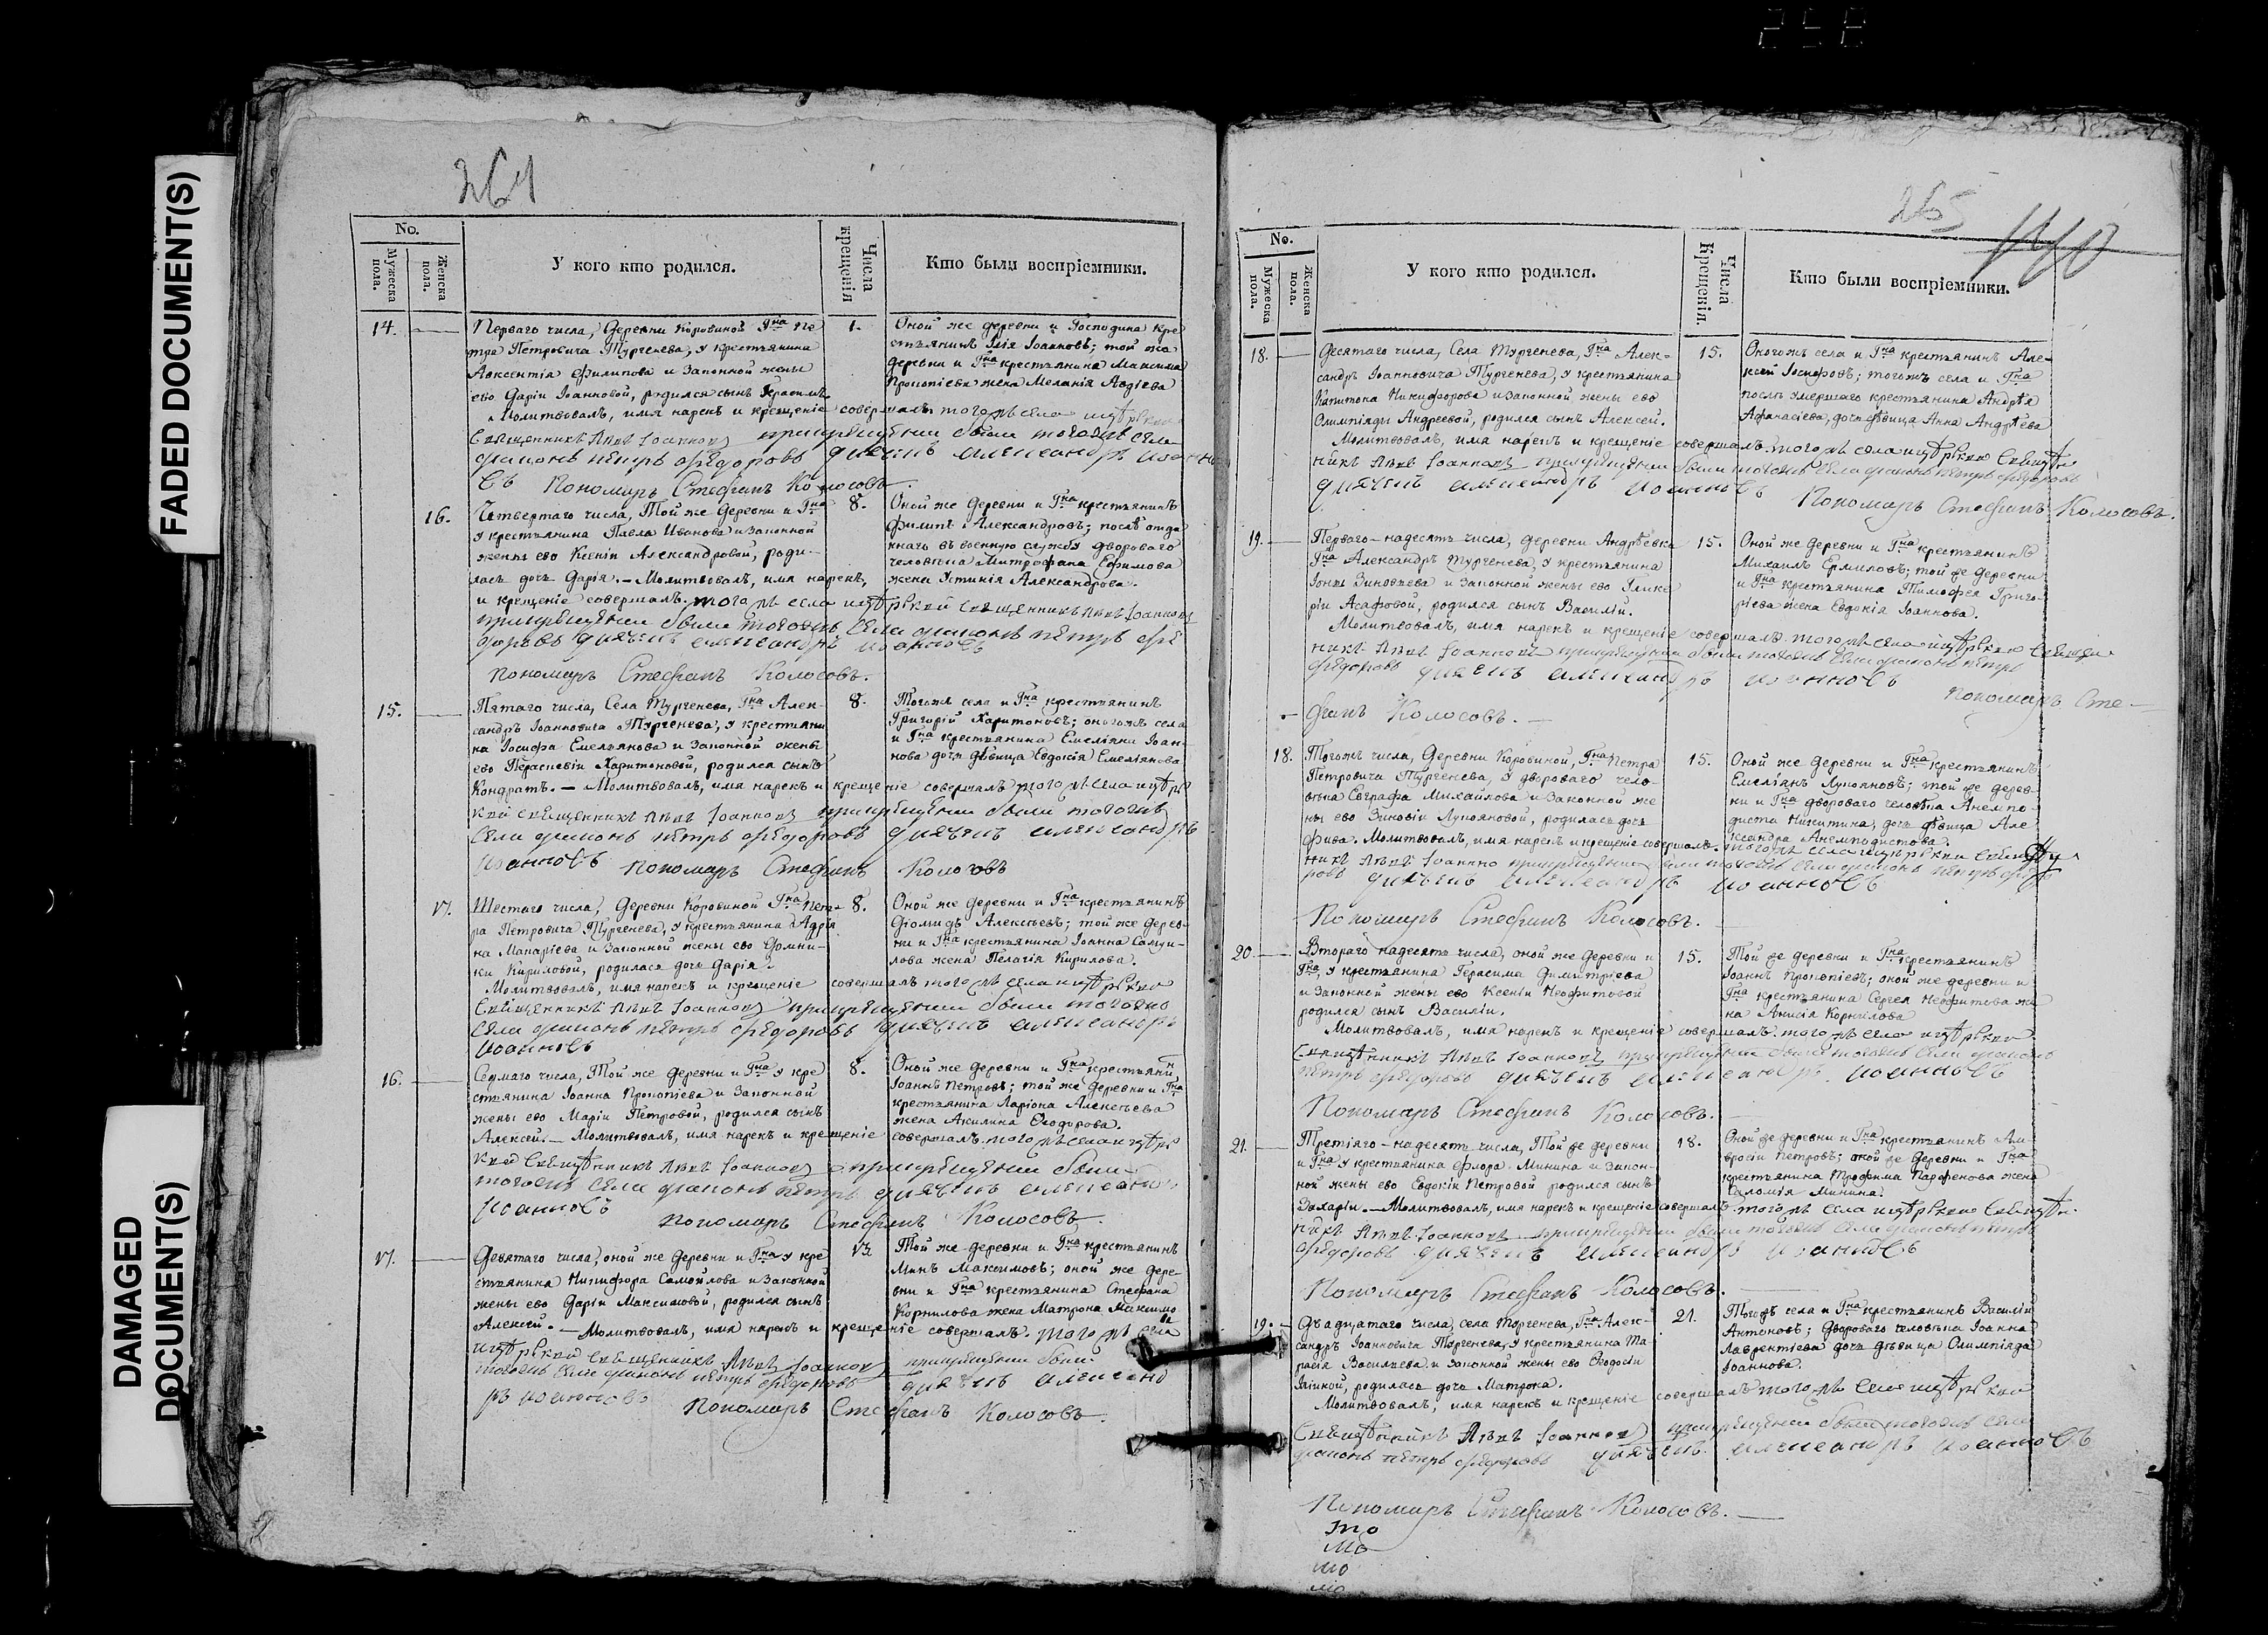 FADED DOCUMENT(S)
DAMAGED
DOCUMENT(S)
264
No.
Мужеска пола.
Женска пола.
У кого кто родился.
Числа крещенія
Кто были воспріемники.
14.
Перваго числа, Деревни Коровиной Гна Пе
тра Петровича Тургенева, у крестьянина
Авксентія Филипова и Законной жены
ево Даріи Іоанновой, родился сынъ
Молитвовалъ, имя нарекъ и крещеніе совершалъ тогожъ села
Священникъ Іоанновъ при крещеніи были тогожъ села
діаконъ петръ Федоровъ дьячекъ александръ иоан
въ Пономарь Стефанъ Колосовъ.
1.
Оной же деревни и Господина кре
стьянинъ Ілія Іоанновъ; той же
деревни и Гна крестьянина Максима
Прокопіева жена Меланія Авдіева
16.
Четвертаго числа, Той же Деревни и Гна
у крестьянина Павла Иванова и Законной
жены ево Ксеніи Александровой, роди-
лась дочь Дарія. - Молитвовалъ, имя нарекъ,
и крещеніе совершалъ. тогожъ села священникъ Іоанновъ
при крещеніи были тогожъ села діаконъ петръ фе
доровъ дьячекъ александръ иоанновъ
Пономарь Стефанъ Колосовъ.
8.
Оной же Деревни и Гна крестьянинъ
Филипъ Александровъ; послѣ отда
ннаго въ военную службу двороваго
человека Митрофана Ефимова
жена Устинія Александрова.
15.
Пятаго числа, Села Тургенева, Гна Алек-
сандръ Іоанновича Тургенева, у крестьяни
на Іосифа Емельянова и Законной жены
ево Параскевіи Харитоновой, родился сынъ
Кондратъ. - Молитвовалъ, имя нарекъ и крещеніе совершалъ тогожъ села
священникъ Іоанновъ при крещеніи были тогожъ
села діаконъ петръ федоровъ дьячекъ александръ
иоанновъ Пономарь Стефанъ Колосовъ
8.
Тогожъ села и Гна крестьянинъ
Григорій Харитоновъ; оногожъ села
и Гна крестьянина Емеліяна Іоан-
нова дочь дѣвица Евдокія Емеліянова
17.
Шестаго числа, Деревни Коровиной Гна Пет-
ра Петровича Тургенева, у крестьянина Адрія
на Макаріева и Законной жены ево Домни-
ки Кириловой, родилася дочь Дарія.
Молитвовалъ, имя нарекъ и крещеніе совершалъ тогожъ села
Священникъ Іоанновъ при крещеніи были тогожъ
села діаконъ петръ федоровъ дьячекъ александръ
иоанновъ
8.
Оной же деревни и Гна крестьянинъ
Діомидъ Алексѣевъ; той же дерев-
ни и Гна крестьянина Іоанна Самуи-
лова жена Пелагія Кирилова.
16.
Седмаго числа, Той же деревни и Гна у кре
стьянина Іоанна Прокопіева и Законной
жены ево Маріи Петровой, родился сынъ
Алексей. - Молитвовалъ, имя нарекъ и крещеніе совершалъ тогожъ села
священникъ Іоанновъ при крещеніи были
тогожъ села діаконъ петръ дьячекъ александръ
иоанновъ Пономарь Стефанъ Колосовъ.
8.
Оной же Деревни и Гна крестьянинъ
Іоаннъ Петровъ; той же Деревни и Гна
крестьянина Ларіона Алексѣева
жена Акилина Феодорова.
17.
Девятаго числа, оной же деревни и Гна у кре
стьянина Никифора Самойлова и Законной
жены ево Даріи Максимовой, родился сынъ
Алексей. - Молитвовалъ, имя нарекъ и крещеніе совершалъ. тогожъ села
священникъ Іоанновъ при крещеніи были
тогожъ села діаконъ петръ федоровъ дьячекъ александ
ръ иоанновъ Пономарь Стефанъ Колосовъ.
13.
Той же деревни и Гна крестьянинъ
Минъ Максимовъ; оной же дере-
вни и Гна крестьянина Стефана
Корнилова жена Матрона Максимова
265
No.
Мужеска пола.
Женска пола.
У кого кто родился.
Числа Крещенія.
Кто были воспріемники.
18.
Десятаго числа, Села Тургенева, Гна Алек-
сандръ Іоанновича Тургенева, у крестьянина
Капитона Никифорова и законной жены ево
Олимпіяды Андреевой, родился сынъ Алексей.
Молитвовалъ, имя нарекъ и крещеніе совершалъ тогожъ села священ
никъ Іоанновъ при крещеніи были тогожъ села діаконъ петръ федоровъ
дьячекъ александръ иоанновъ Пономарь Стефанъ Колосовъ.
15.
Оногожъ села и Гна крестьянинъ Але-
ксей Іосифовъ; тогожъ села и Гна
послѣ умершаго крестьянина Андрѣя
Афанасіева, дочь дѣвица Анна Андрѣева
19.
Перваго-надесять числа, деревни Андрѣевки
Гна Александръ Тургенева, у крестьянина
Іоны Зиновьева и Законной жены ево Глике
ріи Асафовой, родился сынъ Василій.
Молитвовалъ, имя нарекъ и крещеніе совершалъ тогожъ села священ
никъ Іоанновъ при крещеніи были тогожъ села діаконъ петръ
федоровъ дьячекъ александръ иоанновъ
Пономарь Сте-
-фанъ Колосовъ.
15.
Оной же деревни и Гна крестьянинъ
Михаилъ Ермиловъ; той же деревни
и Гна крестьянина Тимофея Григо-
ріева жена Евдокія Іоаннова.
18.
Тогожъ числа, Деревни Коровиной, Гна Петра
Петровича Тургенева, у двороваго чело-
вѣка Евграфа Михайлова и Законной же
ны ево Зиновіи Лукояновой, родилась дочь
Фива. Молитвовалъ, имя нарекъ и крещеніе совершалъ. тогожъ села священ
никъ Іоанновъ при крещеніи были тогожъ села діаконъ петръ федо
ровъ дьячекъ александръ иоанновъ
Пономарь Стефанъ Колосовъ.
15.
Оной же деревни и Гна крестьянинъ
Емельянъ Лукояновъ; той же дерев-
ни и Гна двороваго человѣка Анемпо-
диста Никитина, дочь дѣвица Але
ксандра Анемподистова.
20.
Втораго надесять числа, оной же деревни и
Гна, у крестьянина Герасима Димитріева
и Законной жены ево Ксеніи Неофитовой
родился сынъ Василій.
Молитвовалъ, имя нарекъ и крещеніе совершалъ тогожъ села
священникъ Іоанновъ при крещеніи были тогожъ села діаконъ
петръ федоровъ дьячекъ александръ иоанновъ
Пономарь Стефанъ Колосовъ.
15.
Той же деревни и Гна крестьянинъ
Іоаннъ Прокопіевъ; оной же деревни и
Гна крестьянина Сергея Неофитова же
на Анисія Корнілова
21.
Третіяго-надесять числа, Той же деревни
и Гна у крестьянина Флора Минина и Закон-
ной жены ево Евдокіи Петровой родился сынъ
Захарій. - Молитвовалъ, имя нарекъ и крещеніе совершалъ тогожъ села священ
никъ Іоанновъ при крещеніи были тогожъ села діаконъ петръ
федоровъ дьячекъ александръ иоанновъ
Пономарь Стефанъ Колосовъ.
18.
Оной же деревни и Гна крестьянинъ Ам-
вросій Петровъ; оной же Деревни и Гна
крестьянина Трофима Парфенова жена
Саломія Минина.
19.
Двадцатаго числа, села Тургенева, Гна Алек-
сандръ Іоанновича Тургенева, у крестьянина Та-
расія Васильева и законной жены ево Феодосіи
Іліиной, родилась дочь Матрона.
Молитвовалъ, имя нарекъ и крещеніе совершалъ тогожъ села
Священникъ Іоанновъ при крещеніи были тогожъ села
діаконъ петръ федоровъ дьячекъ александръ иоанновъ
Пономарь Стефанъ Колосовъ.
21.
Тогожъ села и Гна крестьянинъ Василій
Антоновъ; Двороваго человѣка Іоанна
Лаврентіева дочь дѣвица Олимпіяда
Іоаннова.